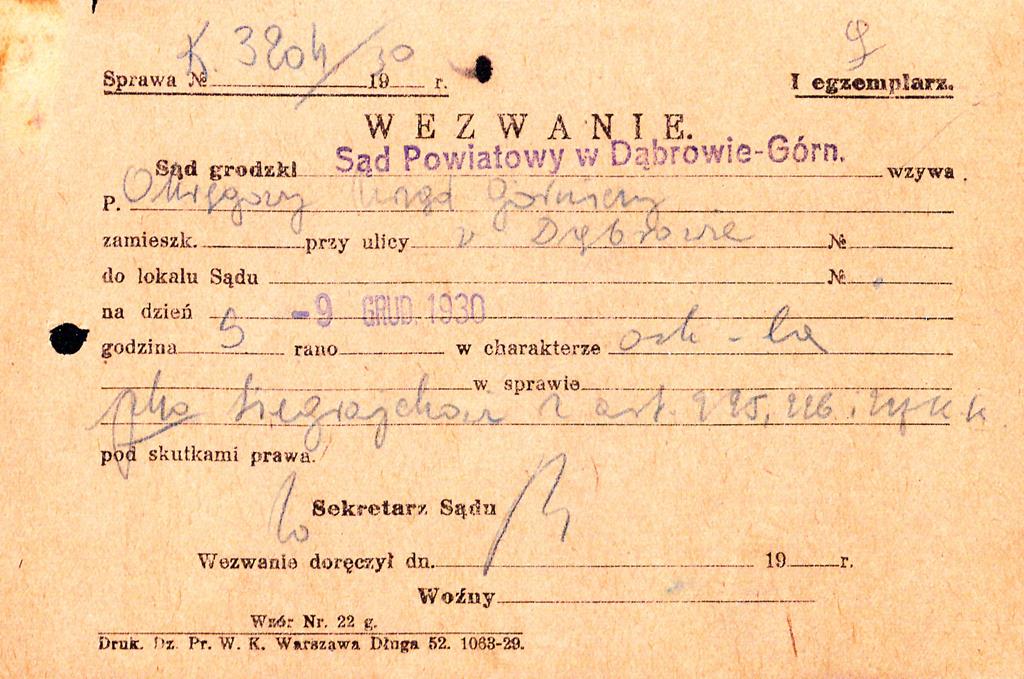 K. 3204/30
Sprawa № 19 r.
I egzemplarz.
WEZWANIE.
Sąd grodzki Sąd Powiatowy w Dąbrowie-Górn. wzywa
P. Okręgowy Urząd Górniczy
zamieszk. przy ulicy w Dąbrowie №
do lokalu Sądu №
na dzień -9 GRUD. 1930
godzina 9 rano w charakterze osk-la
w sprawie
pko z art. 225, 226 i
pod skutkami prawa.
Sekretarz Sądu
Wezwanie doręczył dn. 19 r.
Woźny
Wzór Nr. 22 g.
Druk. Dz. Pr. W. K. Warszawa Długa 52. 1063-29.